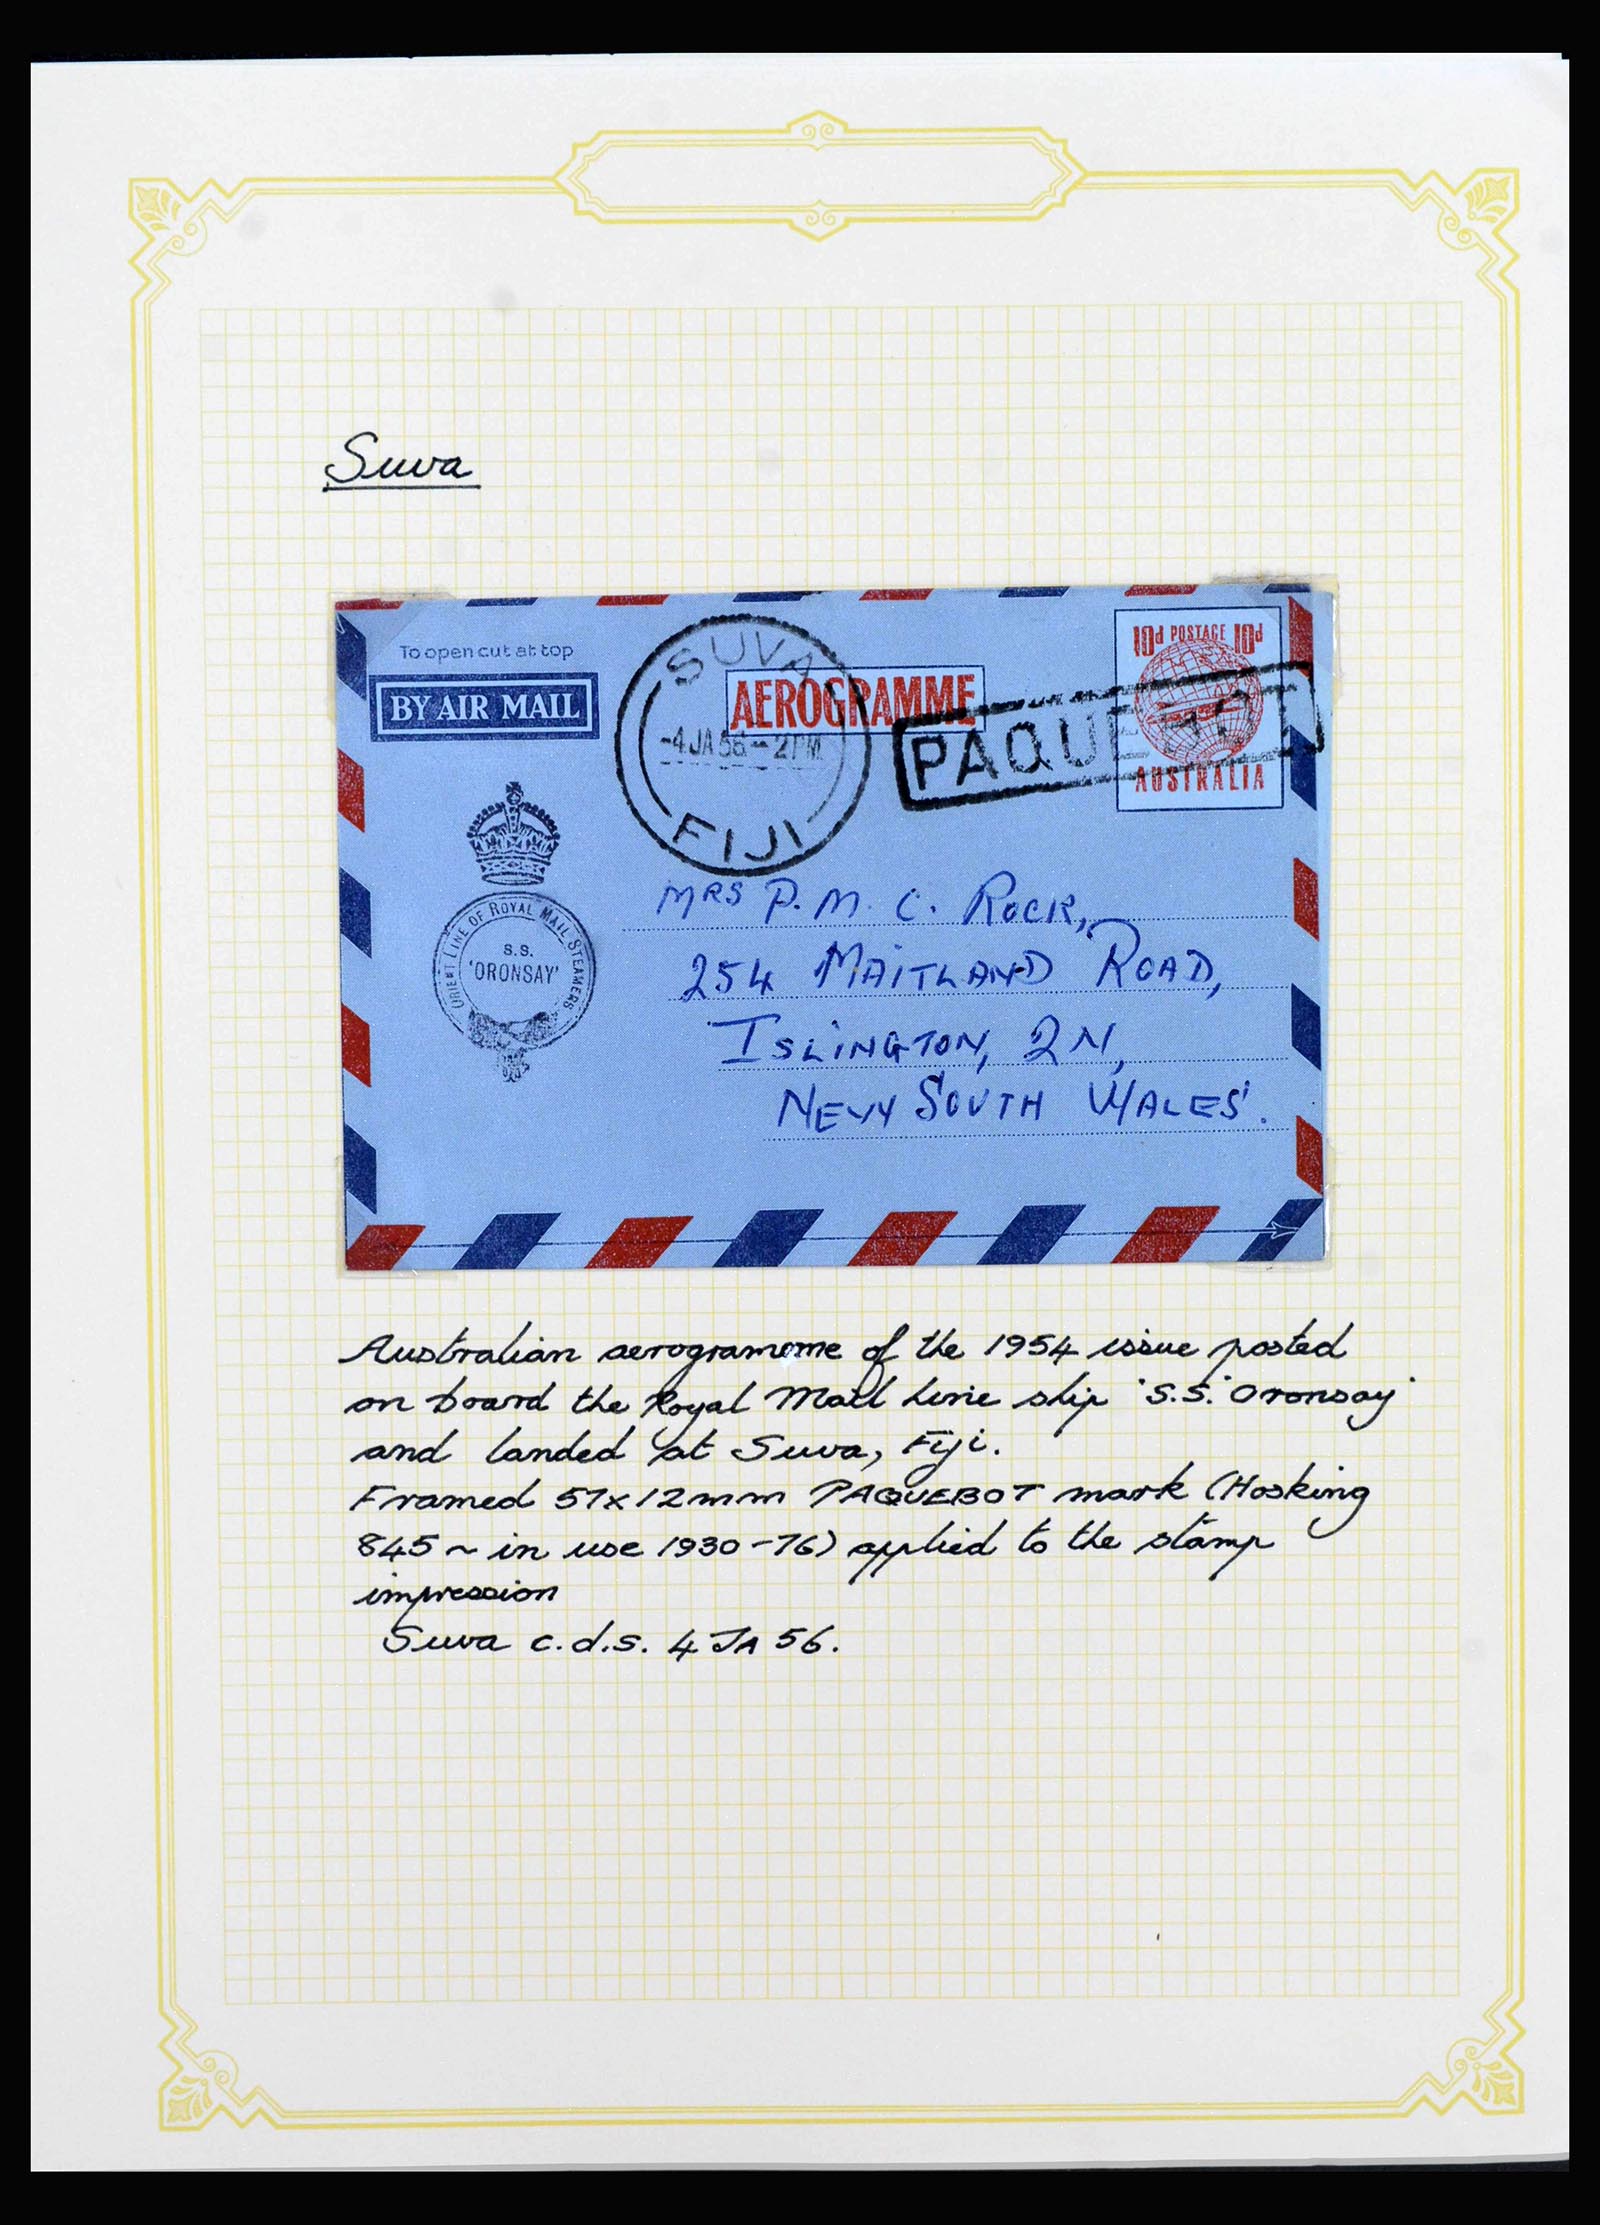 Suva
To open cut at top
BY AIR MAIL
SUVA
-4 JA 56 - 2 PM
FIJI
AEROGRAMME
10d POSTAGE 10d
AUSTRALIA
ORIENT LINE OF ROYAL MAIL STEAMERS
S.S.
'ORONSAY'
MRS P. M. C. ROCK,
254 MAITLAND ROAD,
ISLINGTON, 2N,
NEW SOUTH WALES.
Australian aerogramme of the 1954 issue posted
on board the Royal Mail Line ship 'S.S. Oronsay'
and landed at Suva, Fiji.
Framed 57x12mm PAQUEBOT mark (Hosking
845 ~ in use 1930-76) applied to the stamp
impression
Suva c.d.s. 4 JA 56.